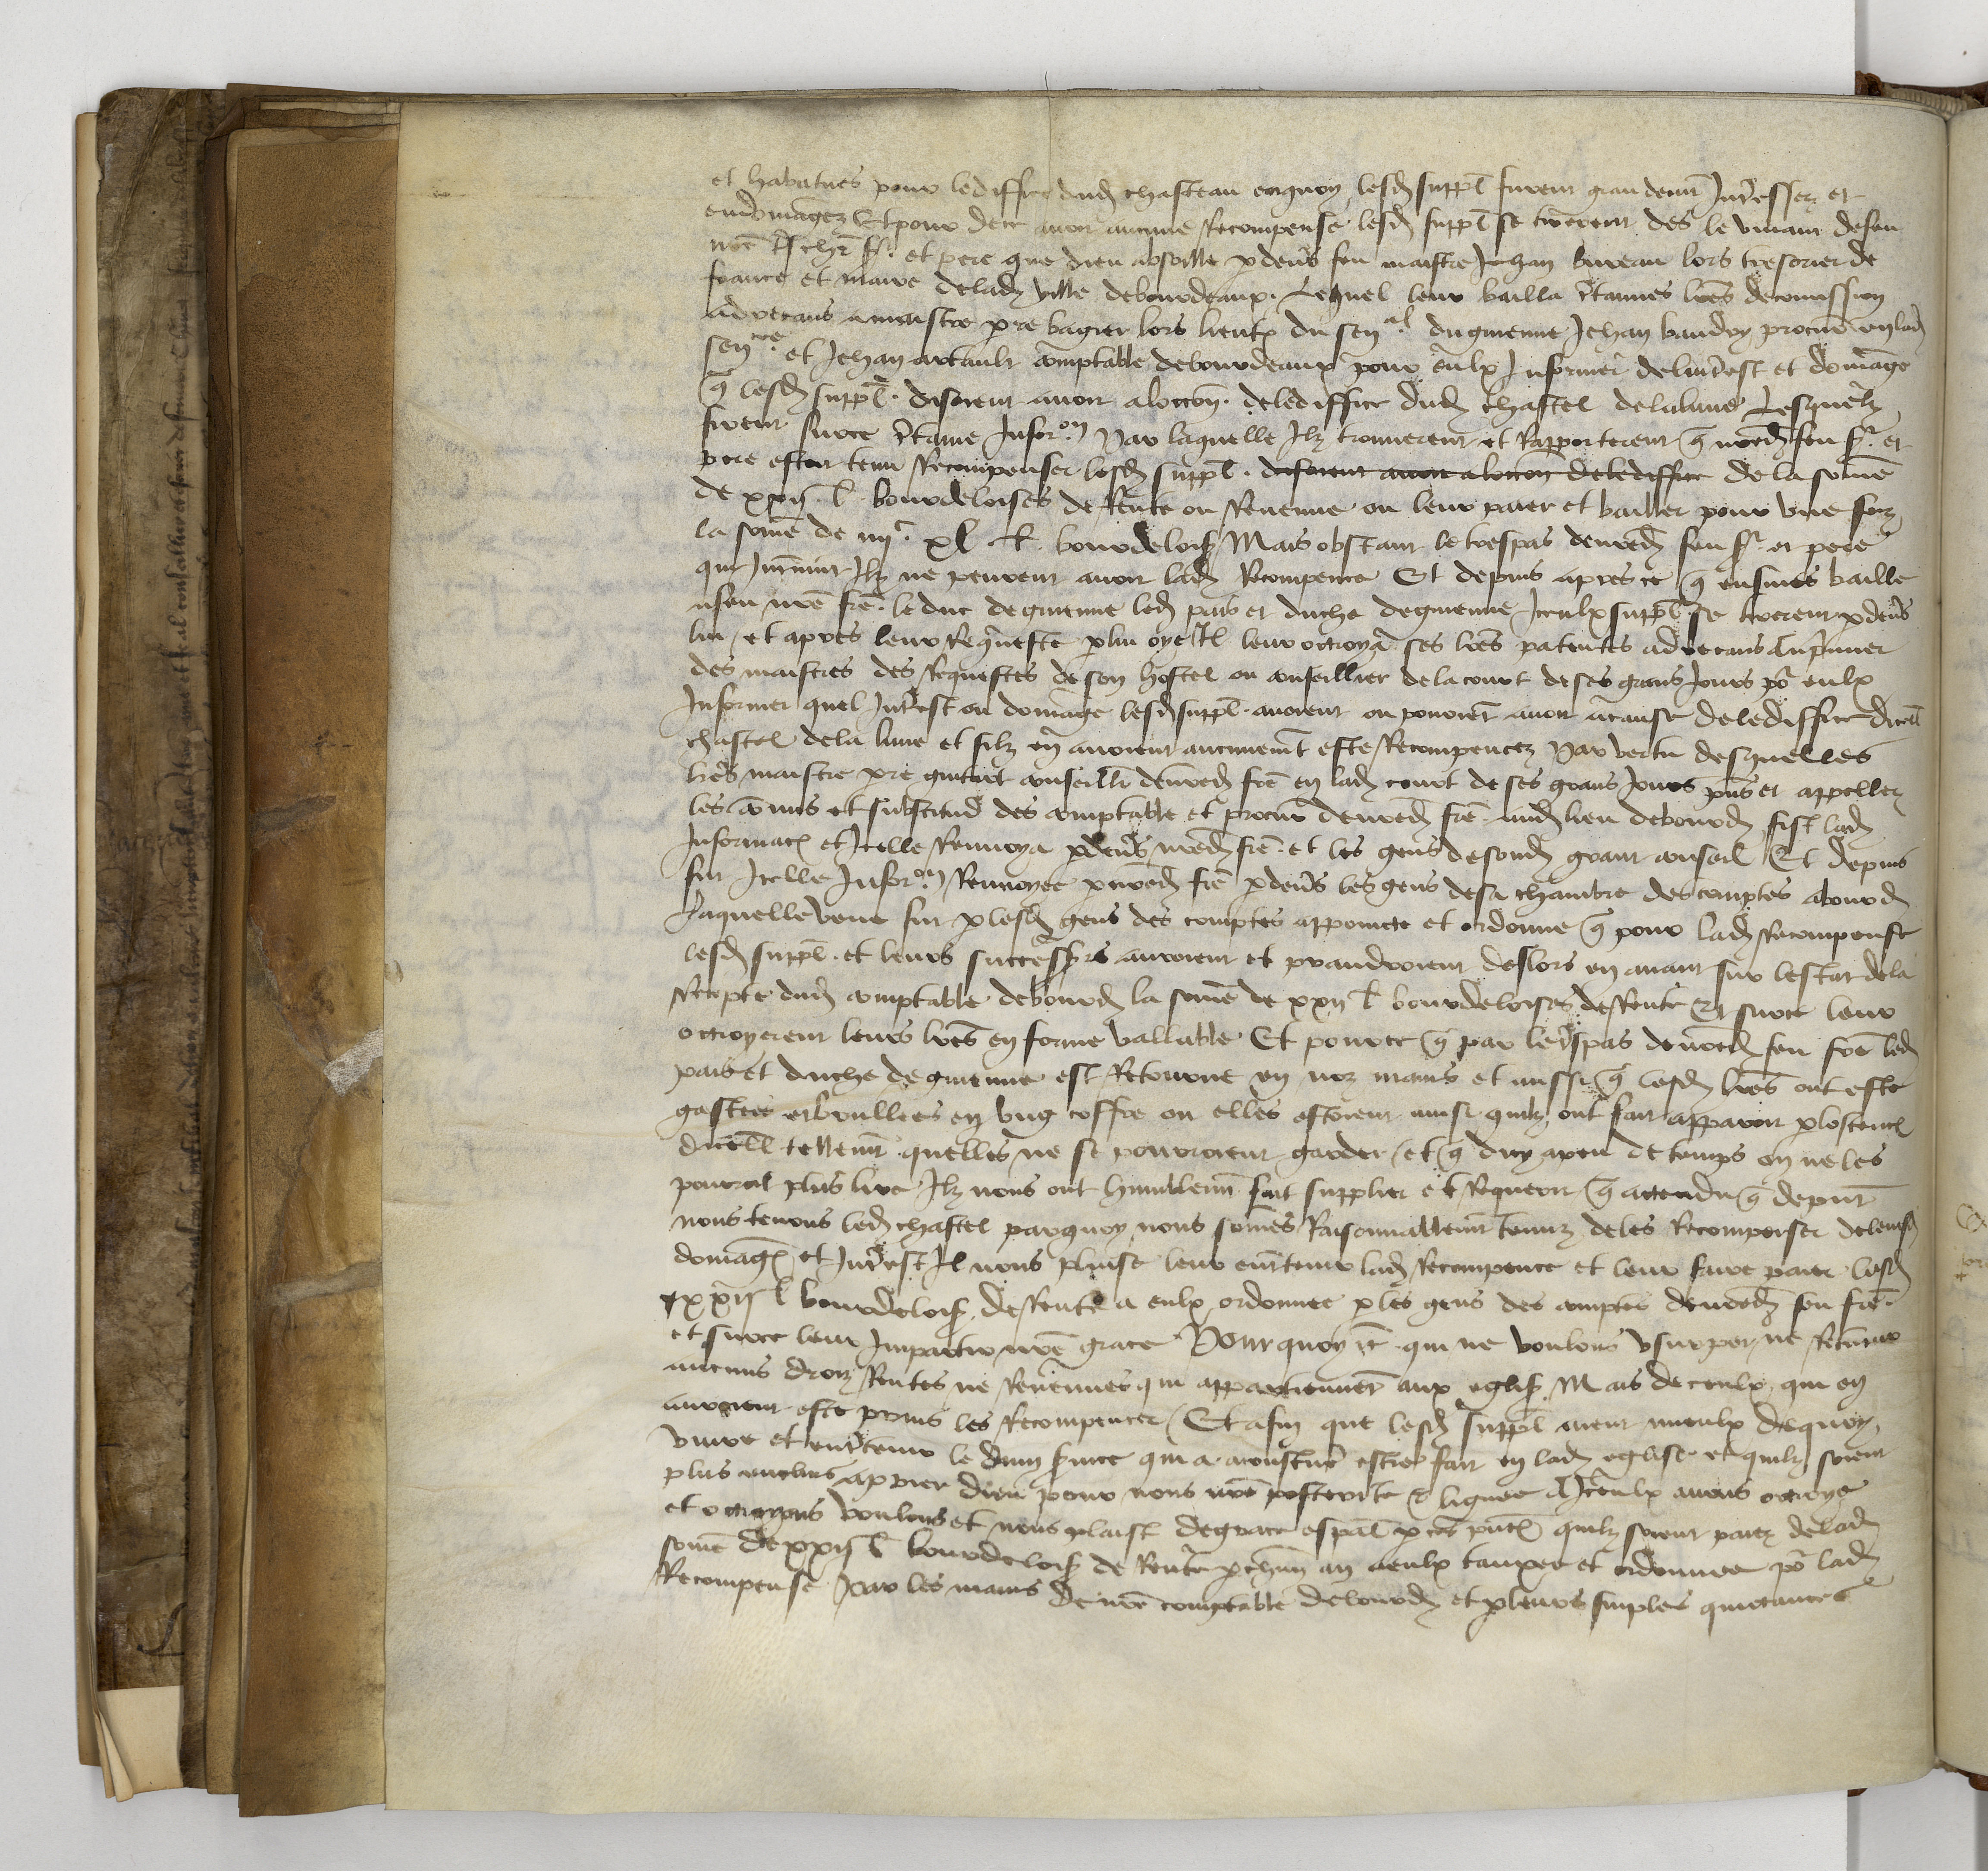 et habatues pour lediffice dud chasteau enquoy lesd suppl furent grandemt Intressez et
endomagez Et pour dece avoir aucune Recompense lesd suppl se tirerent des le vivant defeu
nre tschr sr et pere que dieu absoille pdevs feu maistre Jehan bureau lors tresorier de
france et maire delad ville debourdeaux. Lequel leur bailla ctaines lres decomission
adrecans amaistre pre bagier lors lieuten du senal duguienne Jehan baudry procur en lad
senee et Jehan artault comptable debourdeaux pour eulx Informer delintrest et domage
q lesd suppl. disoient avoir aloccon. delediffice dud chastel delalune Lesquelz
firent surce ctaine Inforon Par laquelle Ilz trouverent et Rapporterent q nred feu sr et
pere estoit tenu Recompenser lesd suppl. disoient avoir aloccon delediffice de la some
de xxij l bourdeloises de Rente ou Revenue ou leur paier et bailler pour une foiz
la some de iiijc xl l bourdelois Mais obstant le trespas denred feu sr et pere
qui Intvint Ilz ne peurent avoir lad Recompence Et depuis apres ce q eusmes baille
afeu nre fre. le duc deguienne led pais et duche deguienne Iceulx suppl se tirerent pdevs
lui et apres leur Requeste plui oye Il leur octroya ses lres patentes adrecans au pmier
des maistres des Requestes de son hostel ou conseillier delacourt deses grans Jours po eulx
Informer quel Intrest ou domage lesd suppl. avoient ou povoient avoir acause delediffice dicell
chastel dela lune et silz en avoient aucunemt este Recompencez Par vertu desquelles
lres maistre pre conseilli denred fre en lad court de ses grans Jours pns et appellez
les comis et substitud des comptable et procur denred fre. aud lieu debourd fist lad
Informacn et Icelle Renvoya pdevs nred fre. et les gens deson grant conseil Et depuis
fut Icelle Inforon Renvoyee p nred fre pdevs les gens desa chambre des comptes abourd
Laquelle veue fut plesd gens des comptes appoincte et ordonne q pour lad Recompense
lesd suppl. et leurs successrs auroient et prandroient deslors en avant sur lestat dela
Recepte dud comptable debourd la some de xxij l bourdeloises deRente Et surce leur
octroyerent leurs lres en forme vallable Et pource q par letspas denred feu fre led
pais et duche deguienne est Retourne en noz mains et aussi q lesd lres ont este
gastees et brullees en ung coffre ou elles estoient ainsi quilz ont fait apparoir plostencn
dicell tellemt quelles ne se pourroient garder et q dicy apeu de temps on ne les
pourroit plus lire Ilz nous ont humblemt fait supplier et Requerir q attendu q depnt
nous tenons led chastel parquoy nous somes Raisonnablemt tenuz deles Recompenser deleursd
domages et Intrest Il nous plaise leur entretenir lad Recompence et leur faire paier lesd
xxij l bourdelois deRente a eulx ordonnee ples gens des comptes denred feu fre.
et surce leur Impartir nre grace Pourquoy nous qui ne voulons usurper ne Retenir
aucuns droiz Rentes ne Revenues qui appartiennent aux eglis Mais deceulx qui en
auroient este prins les Recompencer Et afin que lesd suppl aient mieulx dequoy
vivre et entretenir le divin svice qui a acoustume estre fait en lad eglise et quilz soient
plus enclins aprier dieu pour nous nre posterite et lignee A Iceulx avons octroye
et octroyons voulons et nous plaist degrace espal p ces pntes quilz soient paiez delad
some de xxij l bourdelois de Rente p chun an aeulx tauxee et ordonnee po lad
Recompense Par les mains de nre comptable debourd et pleurs simples quictances